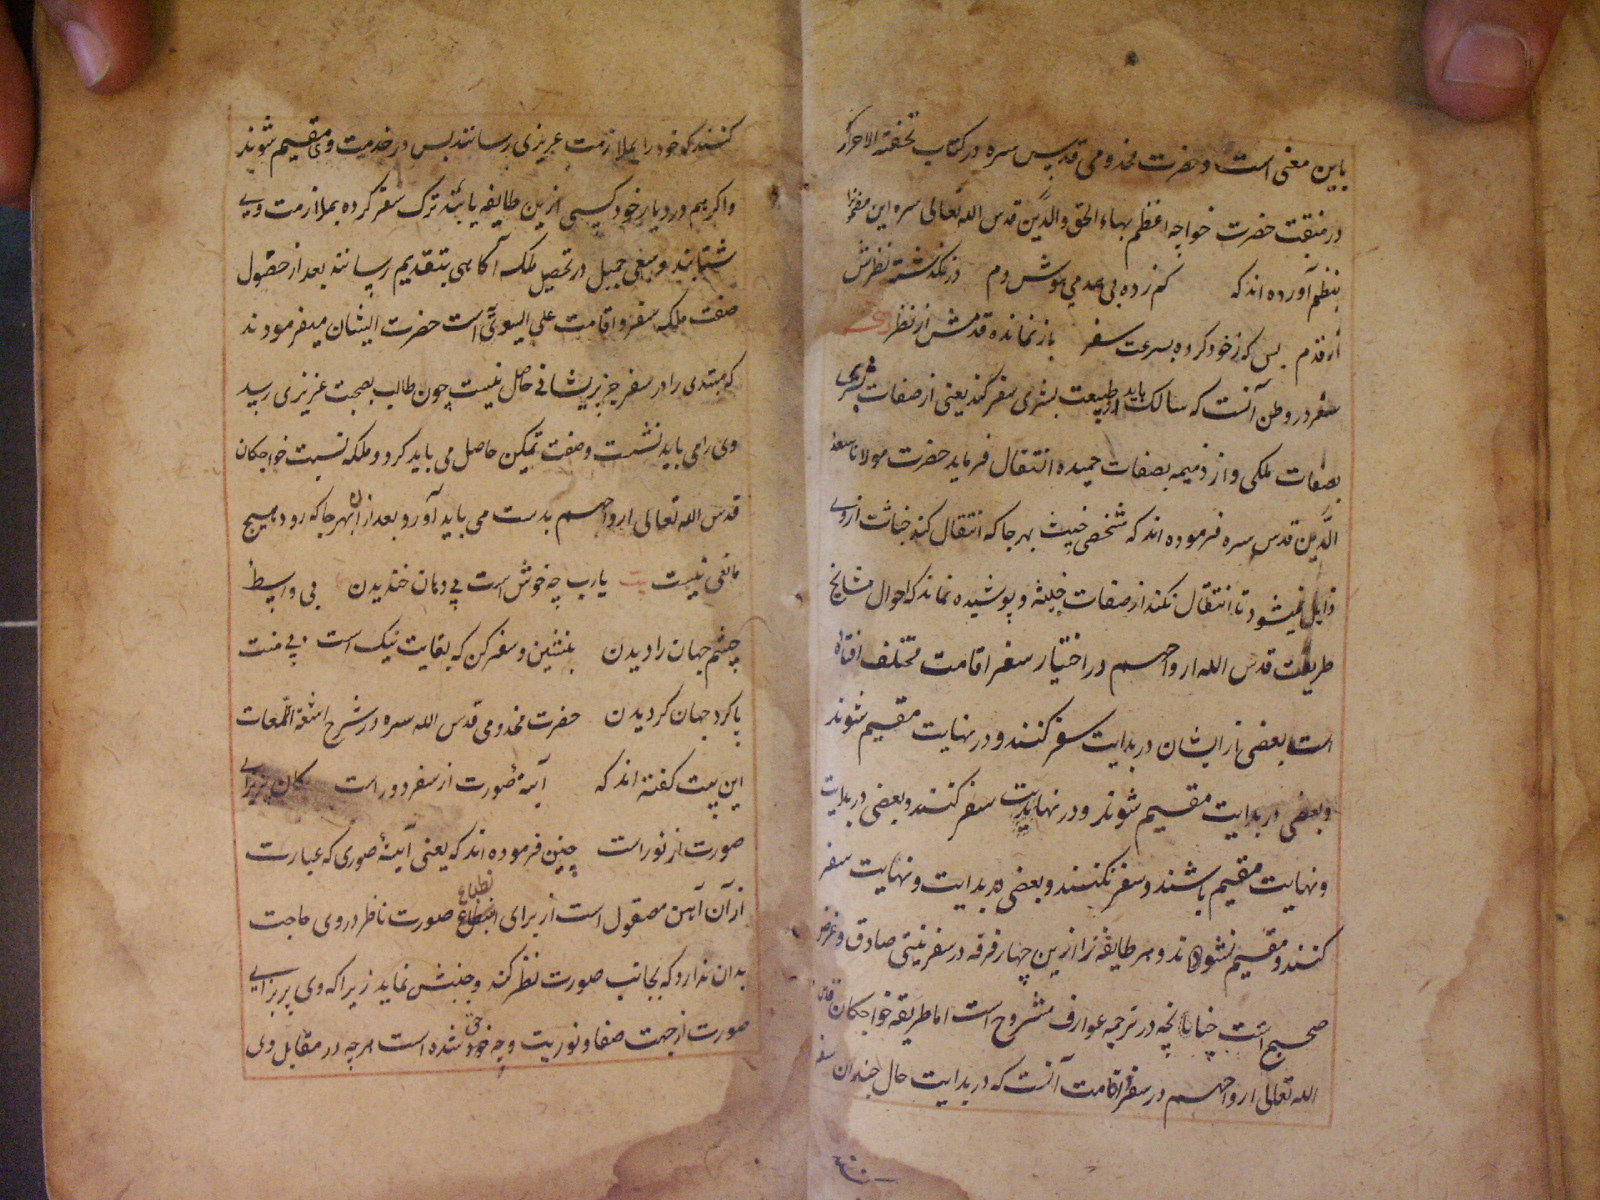 باین معنی است و حضرت مخدومی قدس سره در کتاب تحفة الاحرار
در منقبت حضرت خواجه اعظم بهاء الحق والدین قدس الله تعالی سره این
بنظم آورده اند که کم زده بی همدمی هوش دم در نگذشته نظرش
از قدم بس که ز خود کرده بسرعت سفر باز نمانده قدمش از نظر
سفر در وطن آنست که سالک باید از طبیعت بشری سفر کند یعنی از صفات بشری
بصفات ملکی و از ذمیمه بصفات حمیده انتقال فرماید حضرت مولانا سعد
الدین قدس سره فرموده اند که شخصی خبیث بهر جا که انتقال کند خباثت از وی
زایل نمیشود تا انتقال نکند از صفات خبیثه و پوشیده نماند که احوال مشایخ
طریقت قدس الله ارواحهم در اختیار سفر اقامت مختلف افتاده
است بعضی از ایشان در بدایت سفر کنند و در نهایت مقیم شوند
و بعضی در بدایت مقیم شوند و در نهایت سفر کنند و بعضی در بدایت
و نهایت مقیم باشند و سفر نکنند و بعضی در بدایت و نهایت سفر
کنند و مقیم نشوند و هر طایفه را ازین چهار فرقه در سفر نیتی صادق و غرض
صحیح است چنانچه در ترجمه عوارف مشروح است اما طریقه خواجکان قدس
الله تعالی ارواحهم در سفر و اقامت آنست که در بدایت حال چندان سفر
کنند که خود را بملازمت عزیزی رسانند بس در خدمت وی مقیم شوند
و اکر هم در دیار خود کسی ازین طایفه یابند ترک سفر کرده بملازمت وی
شتابند و سعی جمیل در تحصیل ملکه آکاهی بتقدیم رسانند بعد از حصول
صفت ملکه سفر و اقامت علی السویه است حضرت ایشان میفرمودند
که مبتدی را در سفر جز پریشانی حاصل نیست چون طالب بصحبت عزیزی رسید
وی را می باید نشست و صفت تمکین حاصل می باید کرد و ملکه نسبت خواجکان
قدس الله تعالی ارواحهم بدست می باید آورد بعد از ان بهر جا که رود هیچ
مانعی نیست بیت یا رب چه خوش است بی دهان خندیدن بی واسطه
چشم جهان را دیدن بنشین و سفر کن که بغایت نیک است بی منت
پا کرد جهان کردیدن حضرت مخدومی قدس الله سره در شرح اشعة اللمعات
این بیت کفته اند که آینه صورت از سفر دور است کان پذیرای
صورت از نور است چنین فرموده اند که یعنی آینه صوری که عبارت
از آن آهن مصقول است از برای انطباع صورت ناظر در وی حاجت
به ان ندارد که بجانب صورت نظر کند و جنبش نماید زیرا که وی پذیرای
صورت از جهت صفا و نوریت وجه خود شده است هر چه در مقابل وی